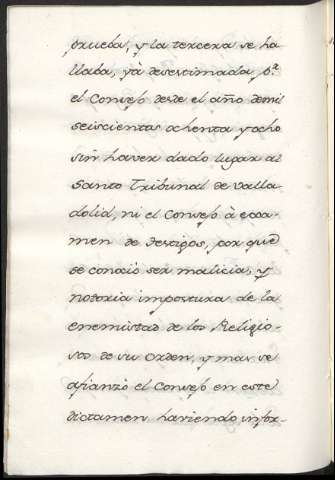 prueba, y la tercera se ha-
llaba, yà desestimada p.r
el Consejo desde el año de mil
seiscientas ochenta y ocho
sin haver dado lugar al
Santo Tribunal de Valla-
dolid, ni el Consejo à exa-
men de Testigos, por que
se conoció ser malicia, y
notoria impostura de la
enemistad de los Religio-
sos de su Orden, y mas se
afianzó el Consejo en este
dictamen haviendo infor-